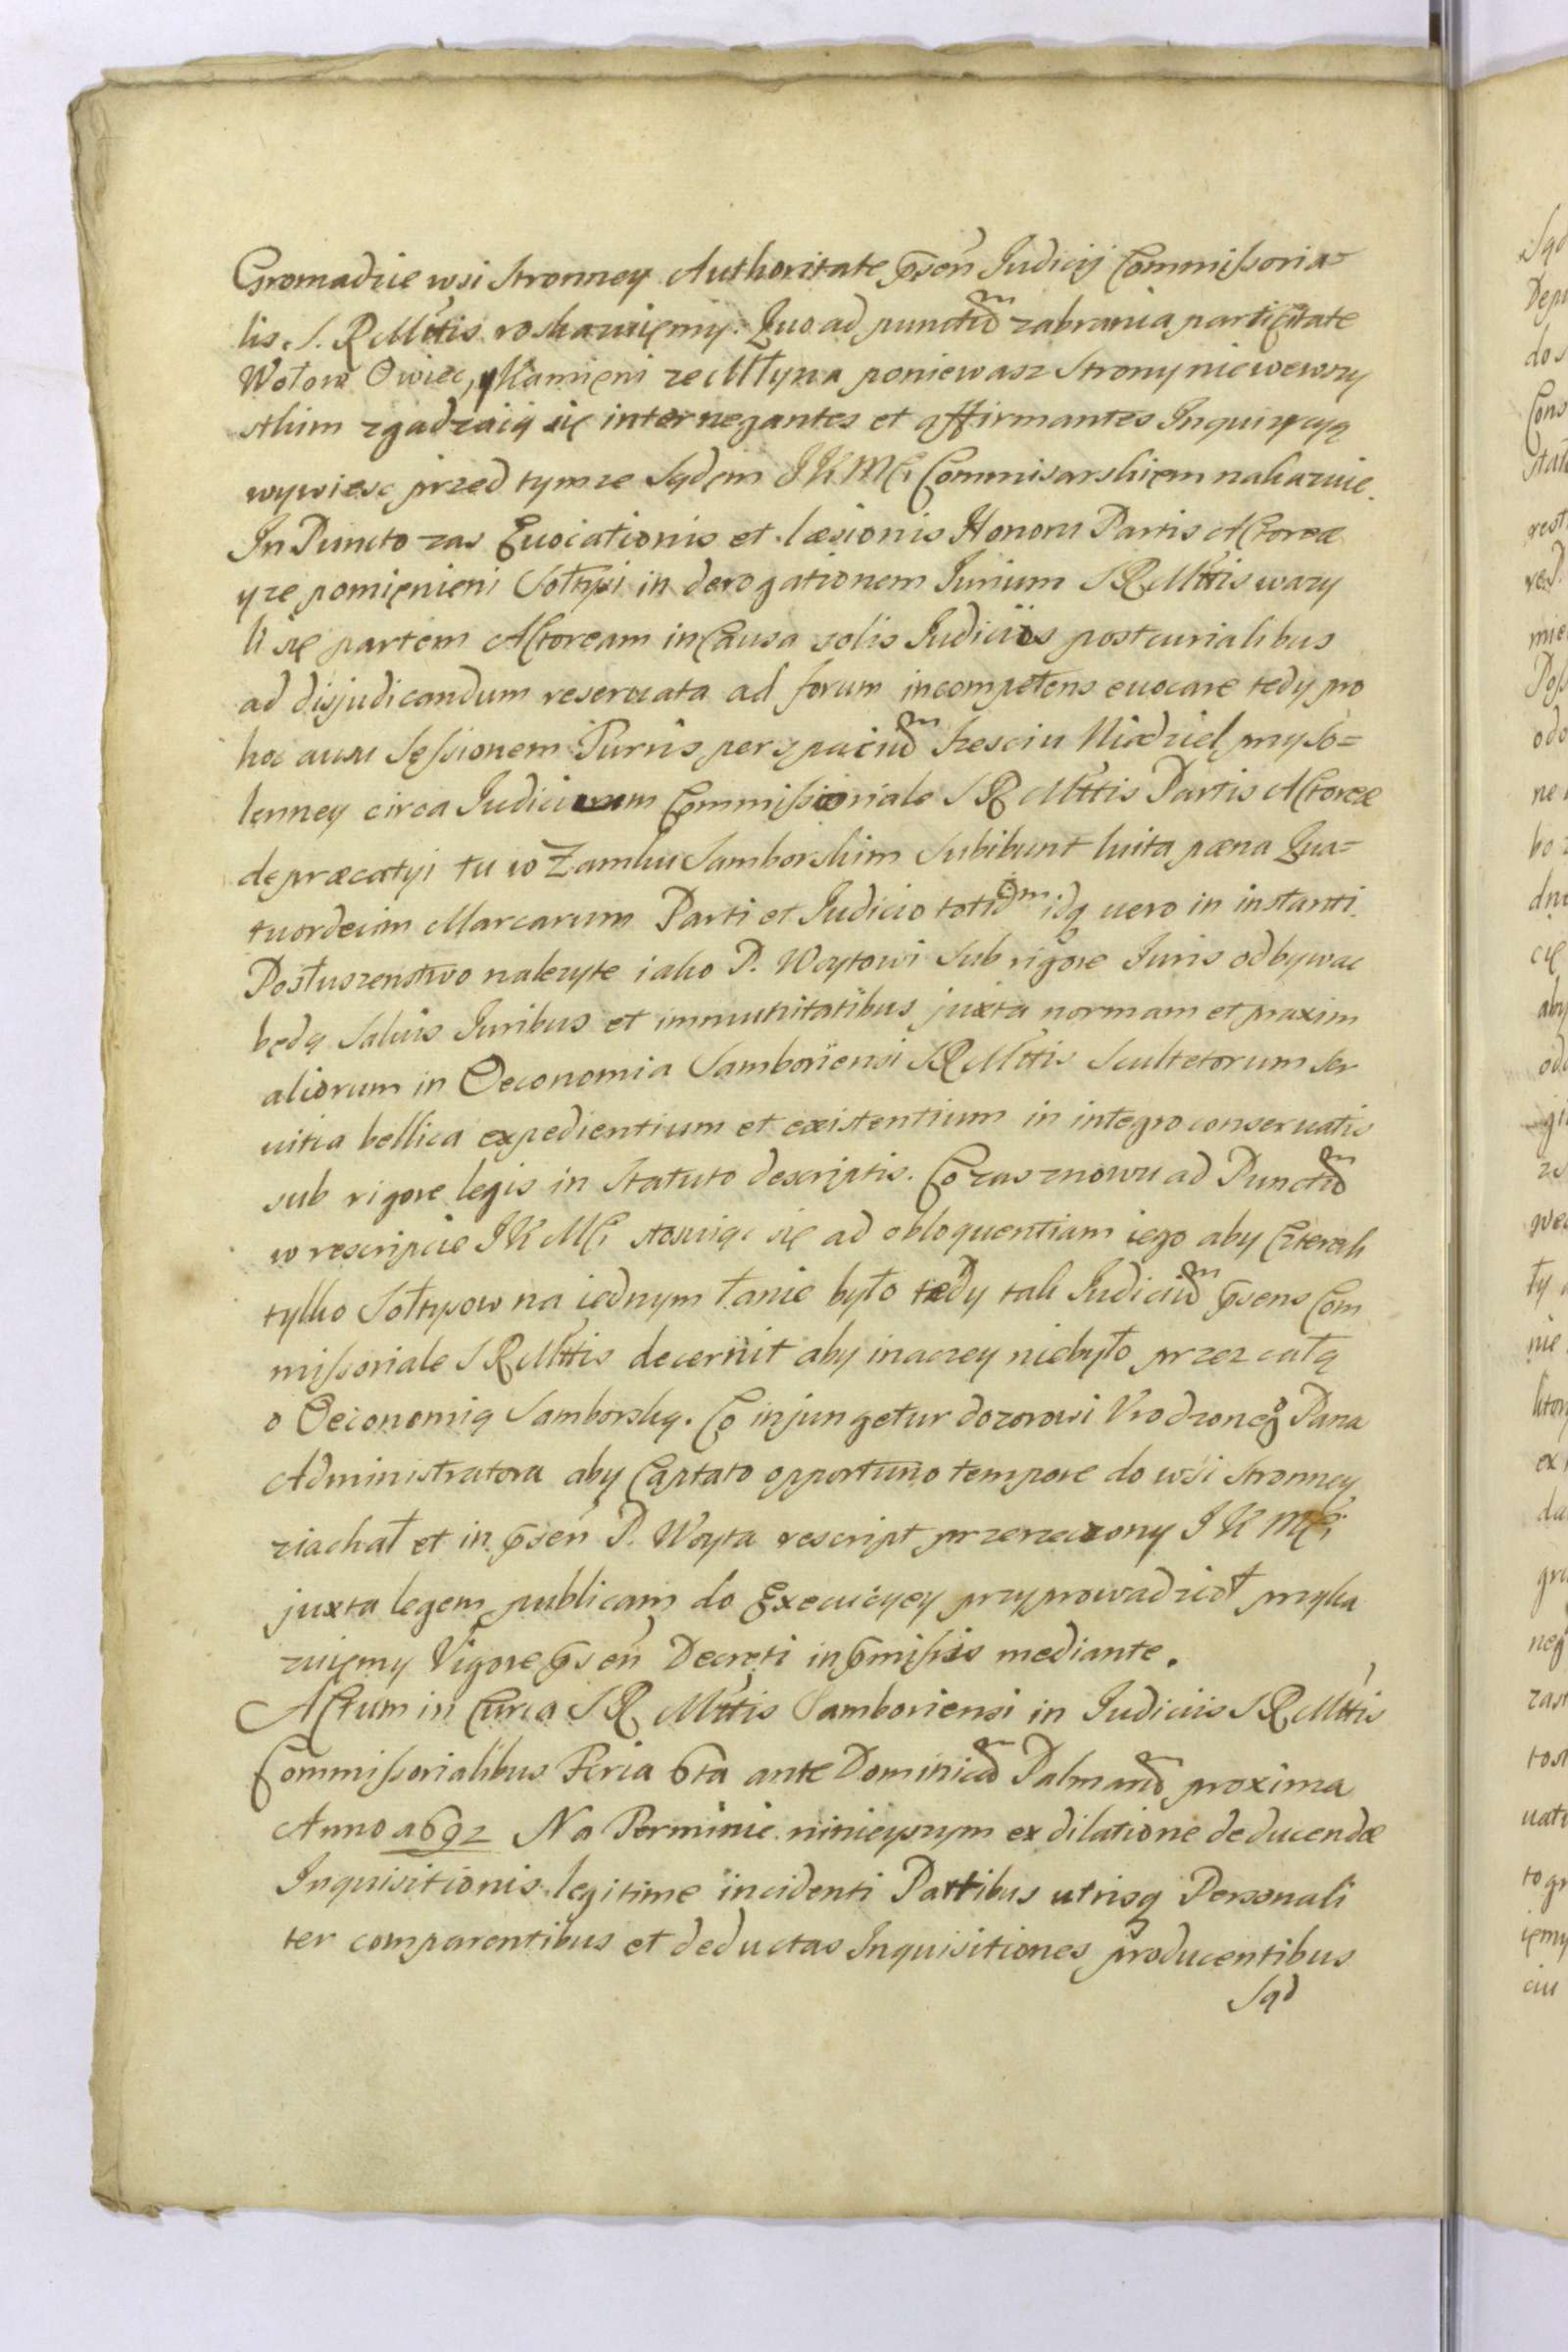 Gromadzie wsi Stronney Authoritate p̄sen Judicij Commissoria=
lis S. R. Mttis roskazuięmy. Quo ad punctum zabrania particitate
Wołow Owiec, y Kamięni ze Młyna poniewasz Strony nie wewszy
stkim zgadzaią się inter negantes et affirmantes Inquizycyą
wywiesc przed tymze Sądęm JKMCi Commisarskięm nakazuie.
In Puncto zas Evocationis et læsionis Honoru Partis Actoreæ
yze pomięnieni Sołtysi in derogationem Jurium SRMttis wazy
li się partem Actoream in Causa solis Judiciis postcurialibus
ad disjudicandum reservata ad forum incompetens evocare tedy pro
hoc ausu Sessionem Turris per spacium szesciu Niedziel, my so=
lenney circa Judicium Commissoriale SR Mttis Partis Actoreæ
depræcatyi tu w Zamku Samborskim subibunt luita pæna Qua=
tuordecim Marcarum Parti et Judicio totidem idq vero in instanti.
Posłuszenstwo nalezyte iako P. Woytowi sub rigore Juris odbywac
będą Salvis Juribus et immunitatibus juxta normam et praxim
aliorum in Oeconomia Samboriensi SRMttis Scultetorum ser
vitia bellica expedientium et existentium in integro conservatis
sub rigore legis in Statuto descriptis. Co zas znowu ad Punctum
w rescripcie JKMCi stosuiąc się ad obloquentiam iego aby Czterech
tylko Sołtysow na iednym łanie było tedy tak Judicium p̄sens Com
missoriale SRMttis decernit aby inaczey niebyło przez całą
o Oeconomią Samborską. Co injungetur dozorowi Urodzonego Pana
Administratora aby Captato opportuno tempore do wsi Stronney
ziachał et in p̄sen P. Woyta rescript przerzeczony JKMCi
juxta legem publicam do Execucyey przyprowadzieł przyka
zuięmy Vigore p̄sen Decreti in p̄missis mediante.
Actum in Curia SR Mttis Samboriensi in Judiciis SRMttis
Commissorialibus Feria 6ta ante Dominicam Palmarum proxima
Anno 1692 Na Terminie ninieyszym ex dilatione deducendæ
Inquisitionis legitime incidenti Partibus utrisq Personali
ter comparentibus et deductas Inquisitiones producentibus
Sąd